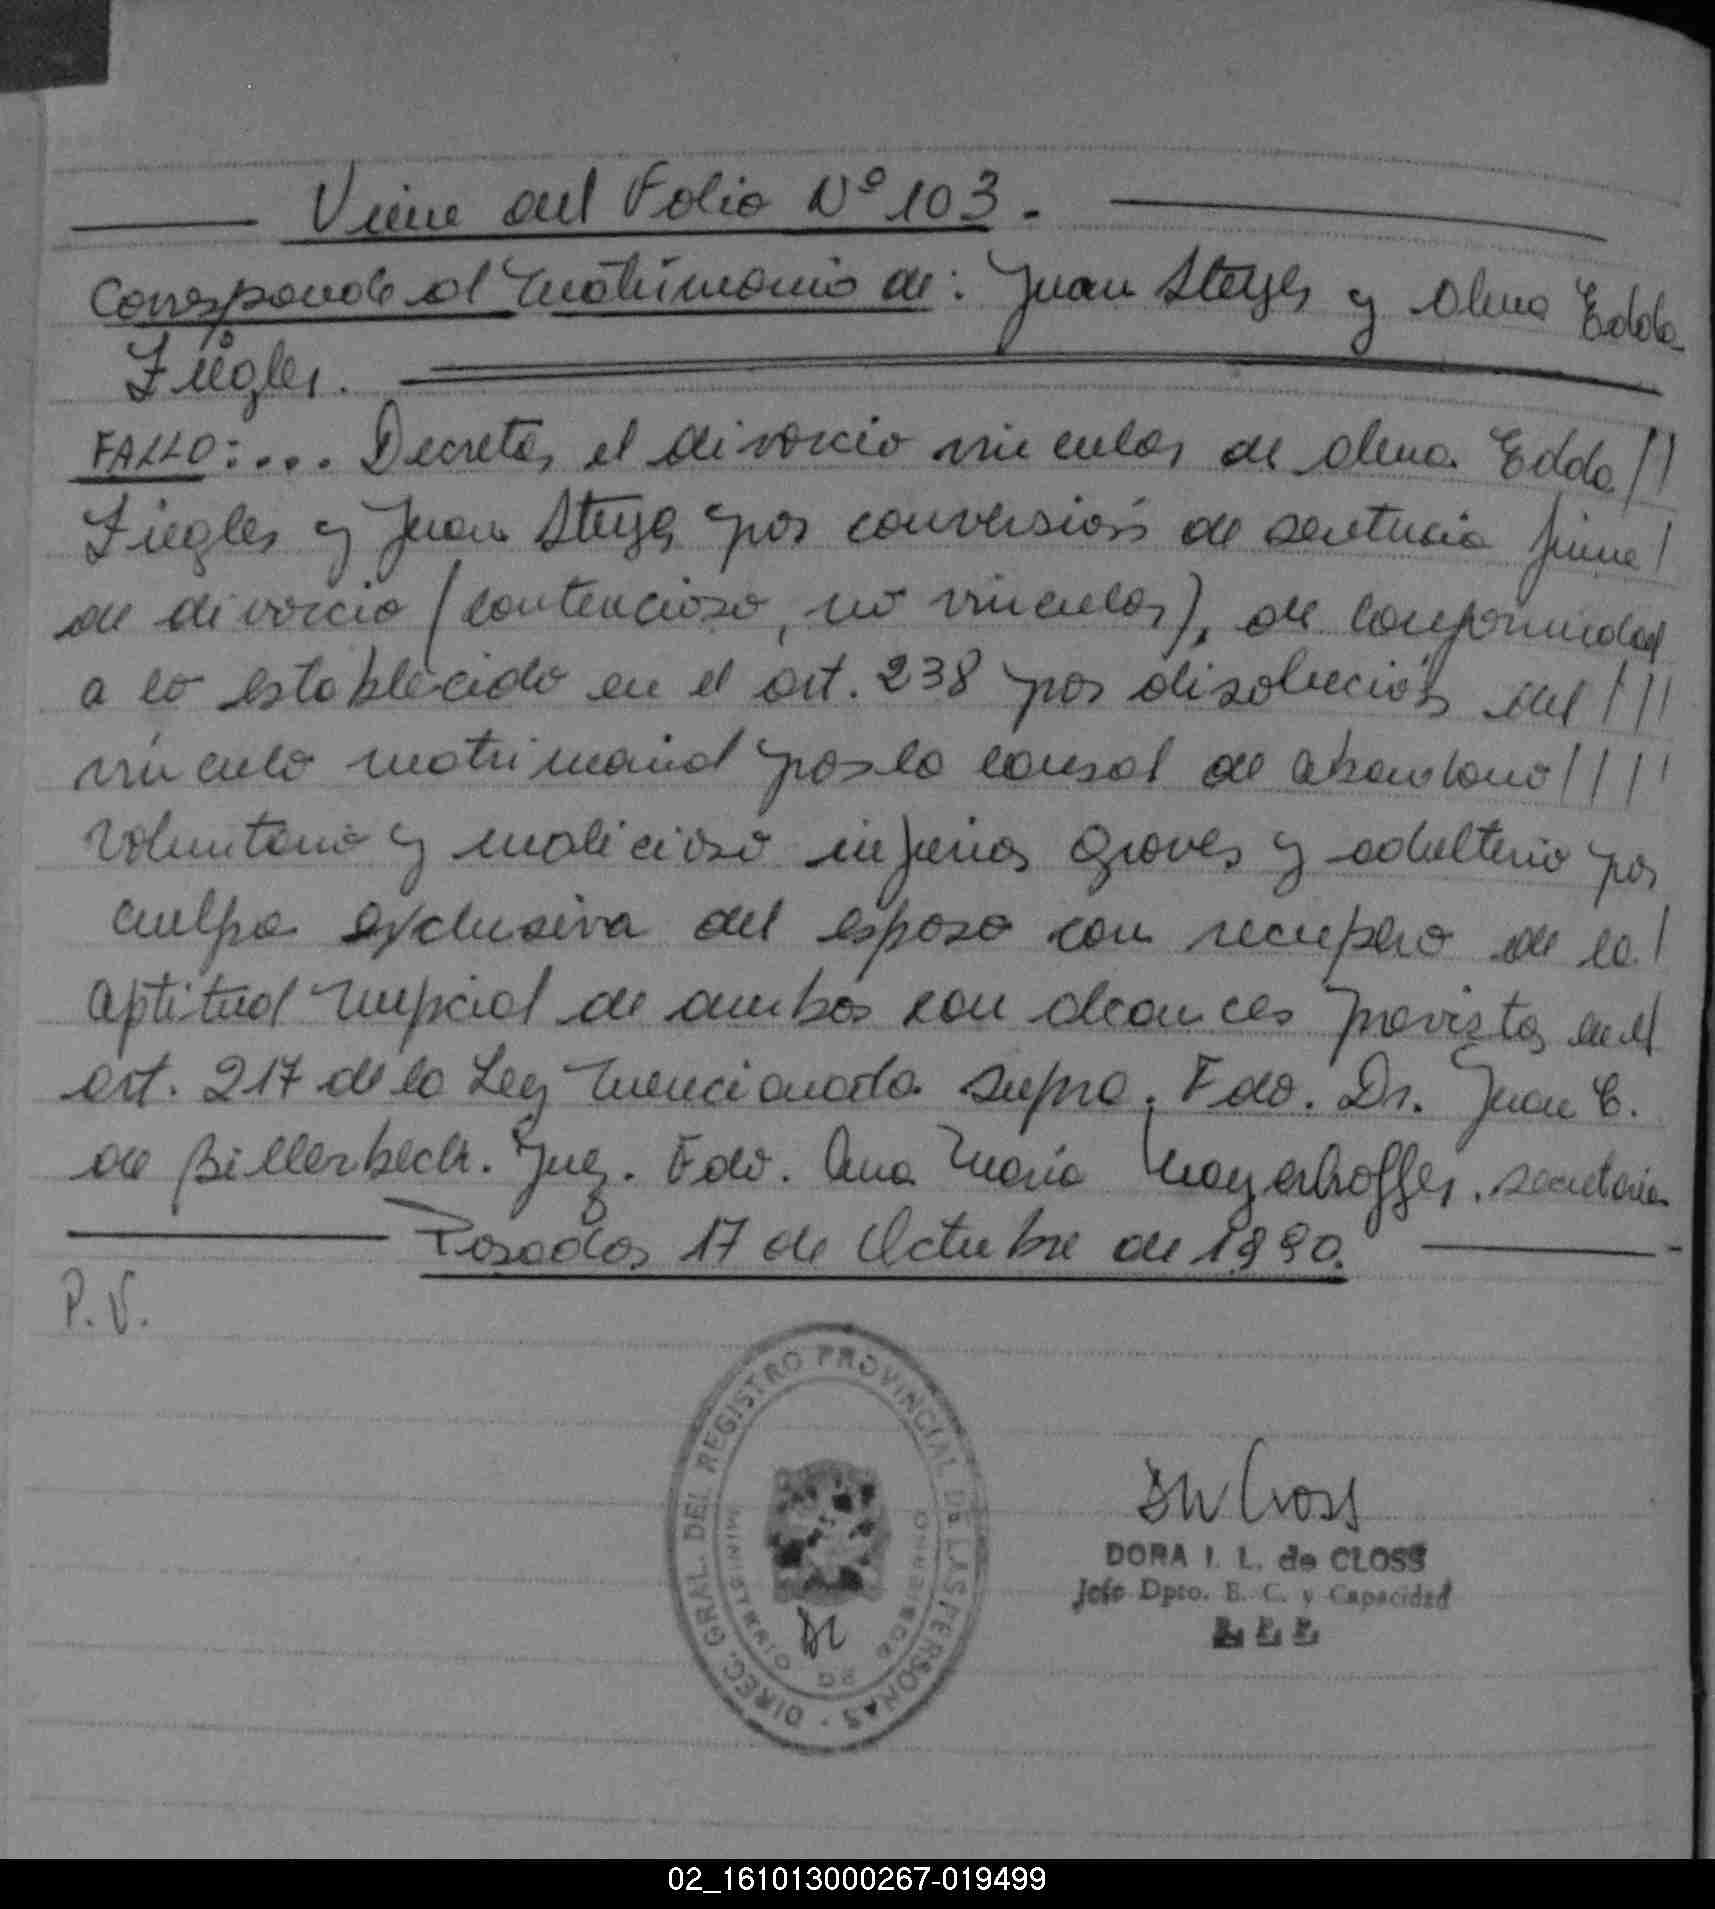 Viene del Folio Nº 103.
Corresponde al matrimonio de: Juan Steyer y Alma Edda
Ziegler.
FALLO:... Decretar el divorcio vincular de Alma Edda //
Ziegler y Juan Steyer por conversión de sentencia firme /
de divorcio (contencioso, no vincular), de conformidad
a lo establecido en el art. 238 por disolución del ///
vínculo matrimonial por la causal de abandono ////
voluntario y malicioso injurias graves y adulterio por
culpa exclusiva del esposo con recupero de la /
aptitud nupcial de ambos con alcances previstos en el
art. 217 de la Ley mencionada supra. Fdo. Dr. Juan C.
de Billerbeck. Juez. Fdo. Ana María Mayerhoffer. secretaria
Posadas 17 de Octubre de 1990.
P.V.
DIREC. GRAL. DEL REGISTRO PROVINCIAL DE LAS PERSONAS -
MINISTERIO DE GOBIERNO
DORA I. L. de CLOSS
Jefe Dpto. E. C. y Capacidad
02_161013000267-019499